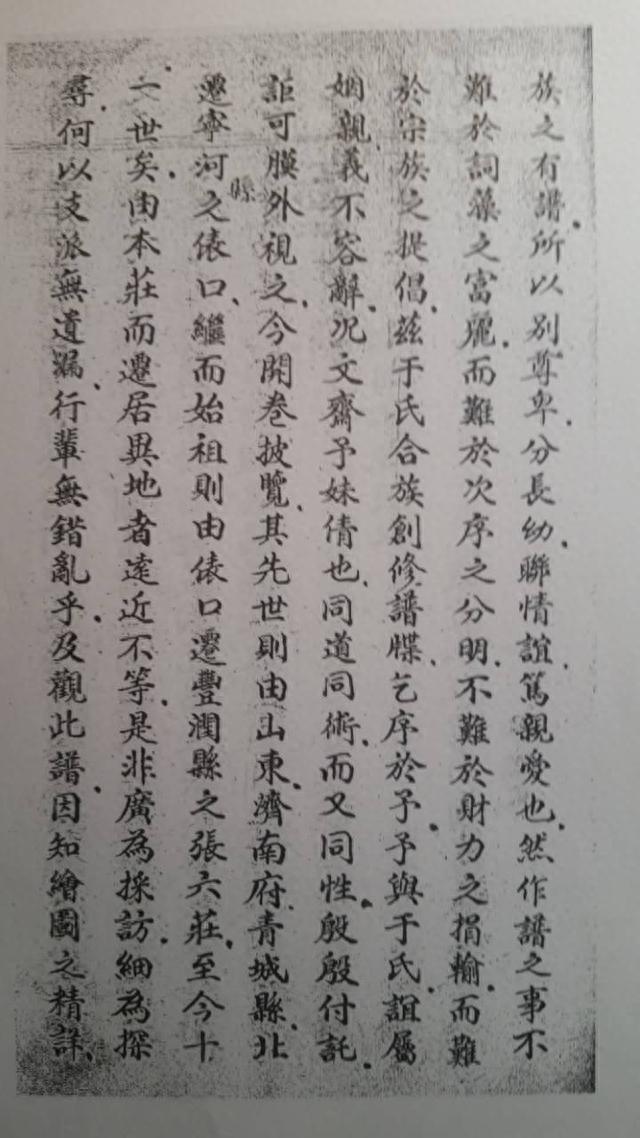 族之有譜、所以别尊卑、分長幼、聯情誼、篤親愛也、然作譜之事不
難於詞藻之富麗、而難於次序之分明、不難於財力之捐輸、而難
於宗族之提倡、兹于氏合族創修譜牒、乞序於予、予與于氏、誼屬
姻親、義不容辭、况文齋予妹倩也、同道同術、而又同性、殷殷付託、
詎可膜外視之、今開卷披覽、其先世則由山東、濟南府、青城縣、北
遷寧河縣之俵口、繼而始祖則由俵口遷豐潤縣之張六莊、至今十
一世矣、由本莊而遷居異地者遠近不等、是非廣為採訪、細為探
尋、何以支派無遺漏、行輩無錯亂乎、及觀此譜、因知繪圖之精詳、